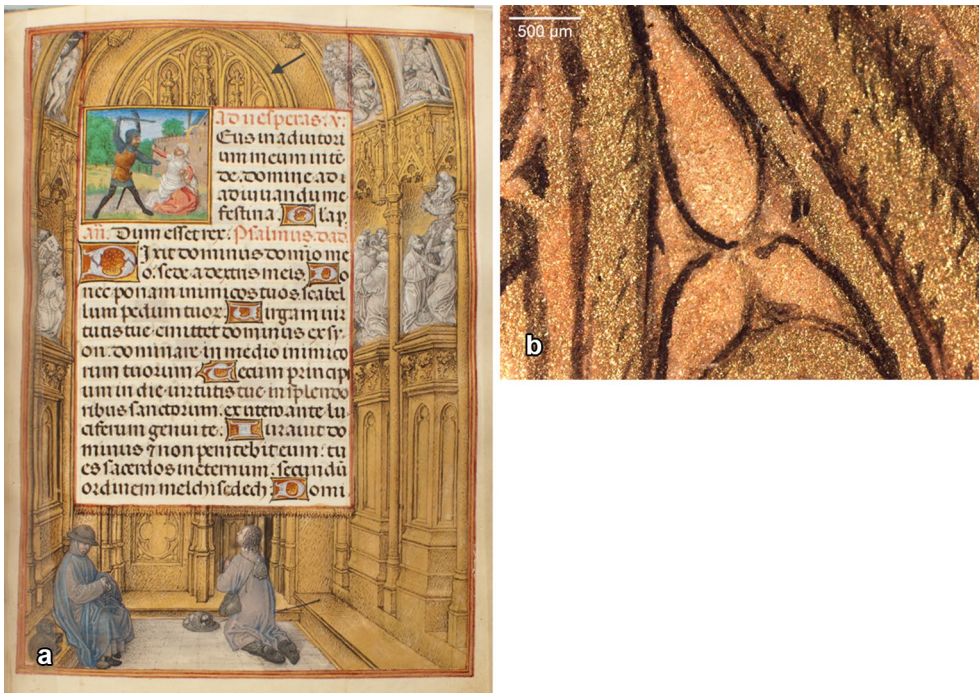 ad vesperas. v.
Eus in adiutori
um meum intē
de. domine ad i
adiuvandum me
festina. lap
añ. Dum esset rex. Psalmus. dad.
Ixit dominus domino me
o. sede a dextris meis. Do
nec ponam inimicos tuos. scabel
lum pedum tuor. irgam vir
tutis tue emittet dominus ex sy
on. dominare in medio inimico
rum tuorum. Tecum princip
ium in die virtutis tue in splendo
ribus sanctorum. ex utero ante lu
ciferum genui te. Iuravit do
minus et non penitebit eum. tu
es sacerdos in eternum. secundū
ordinem melchisedech. Domi
a
500 µm
b